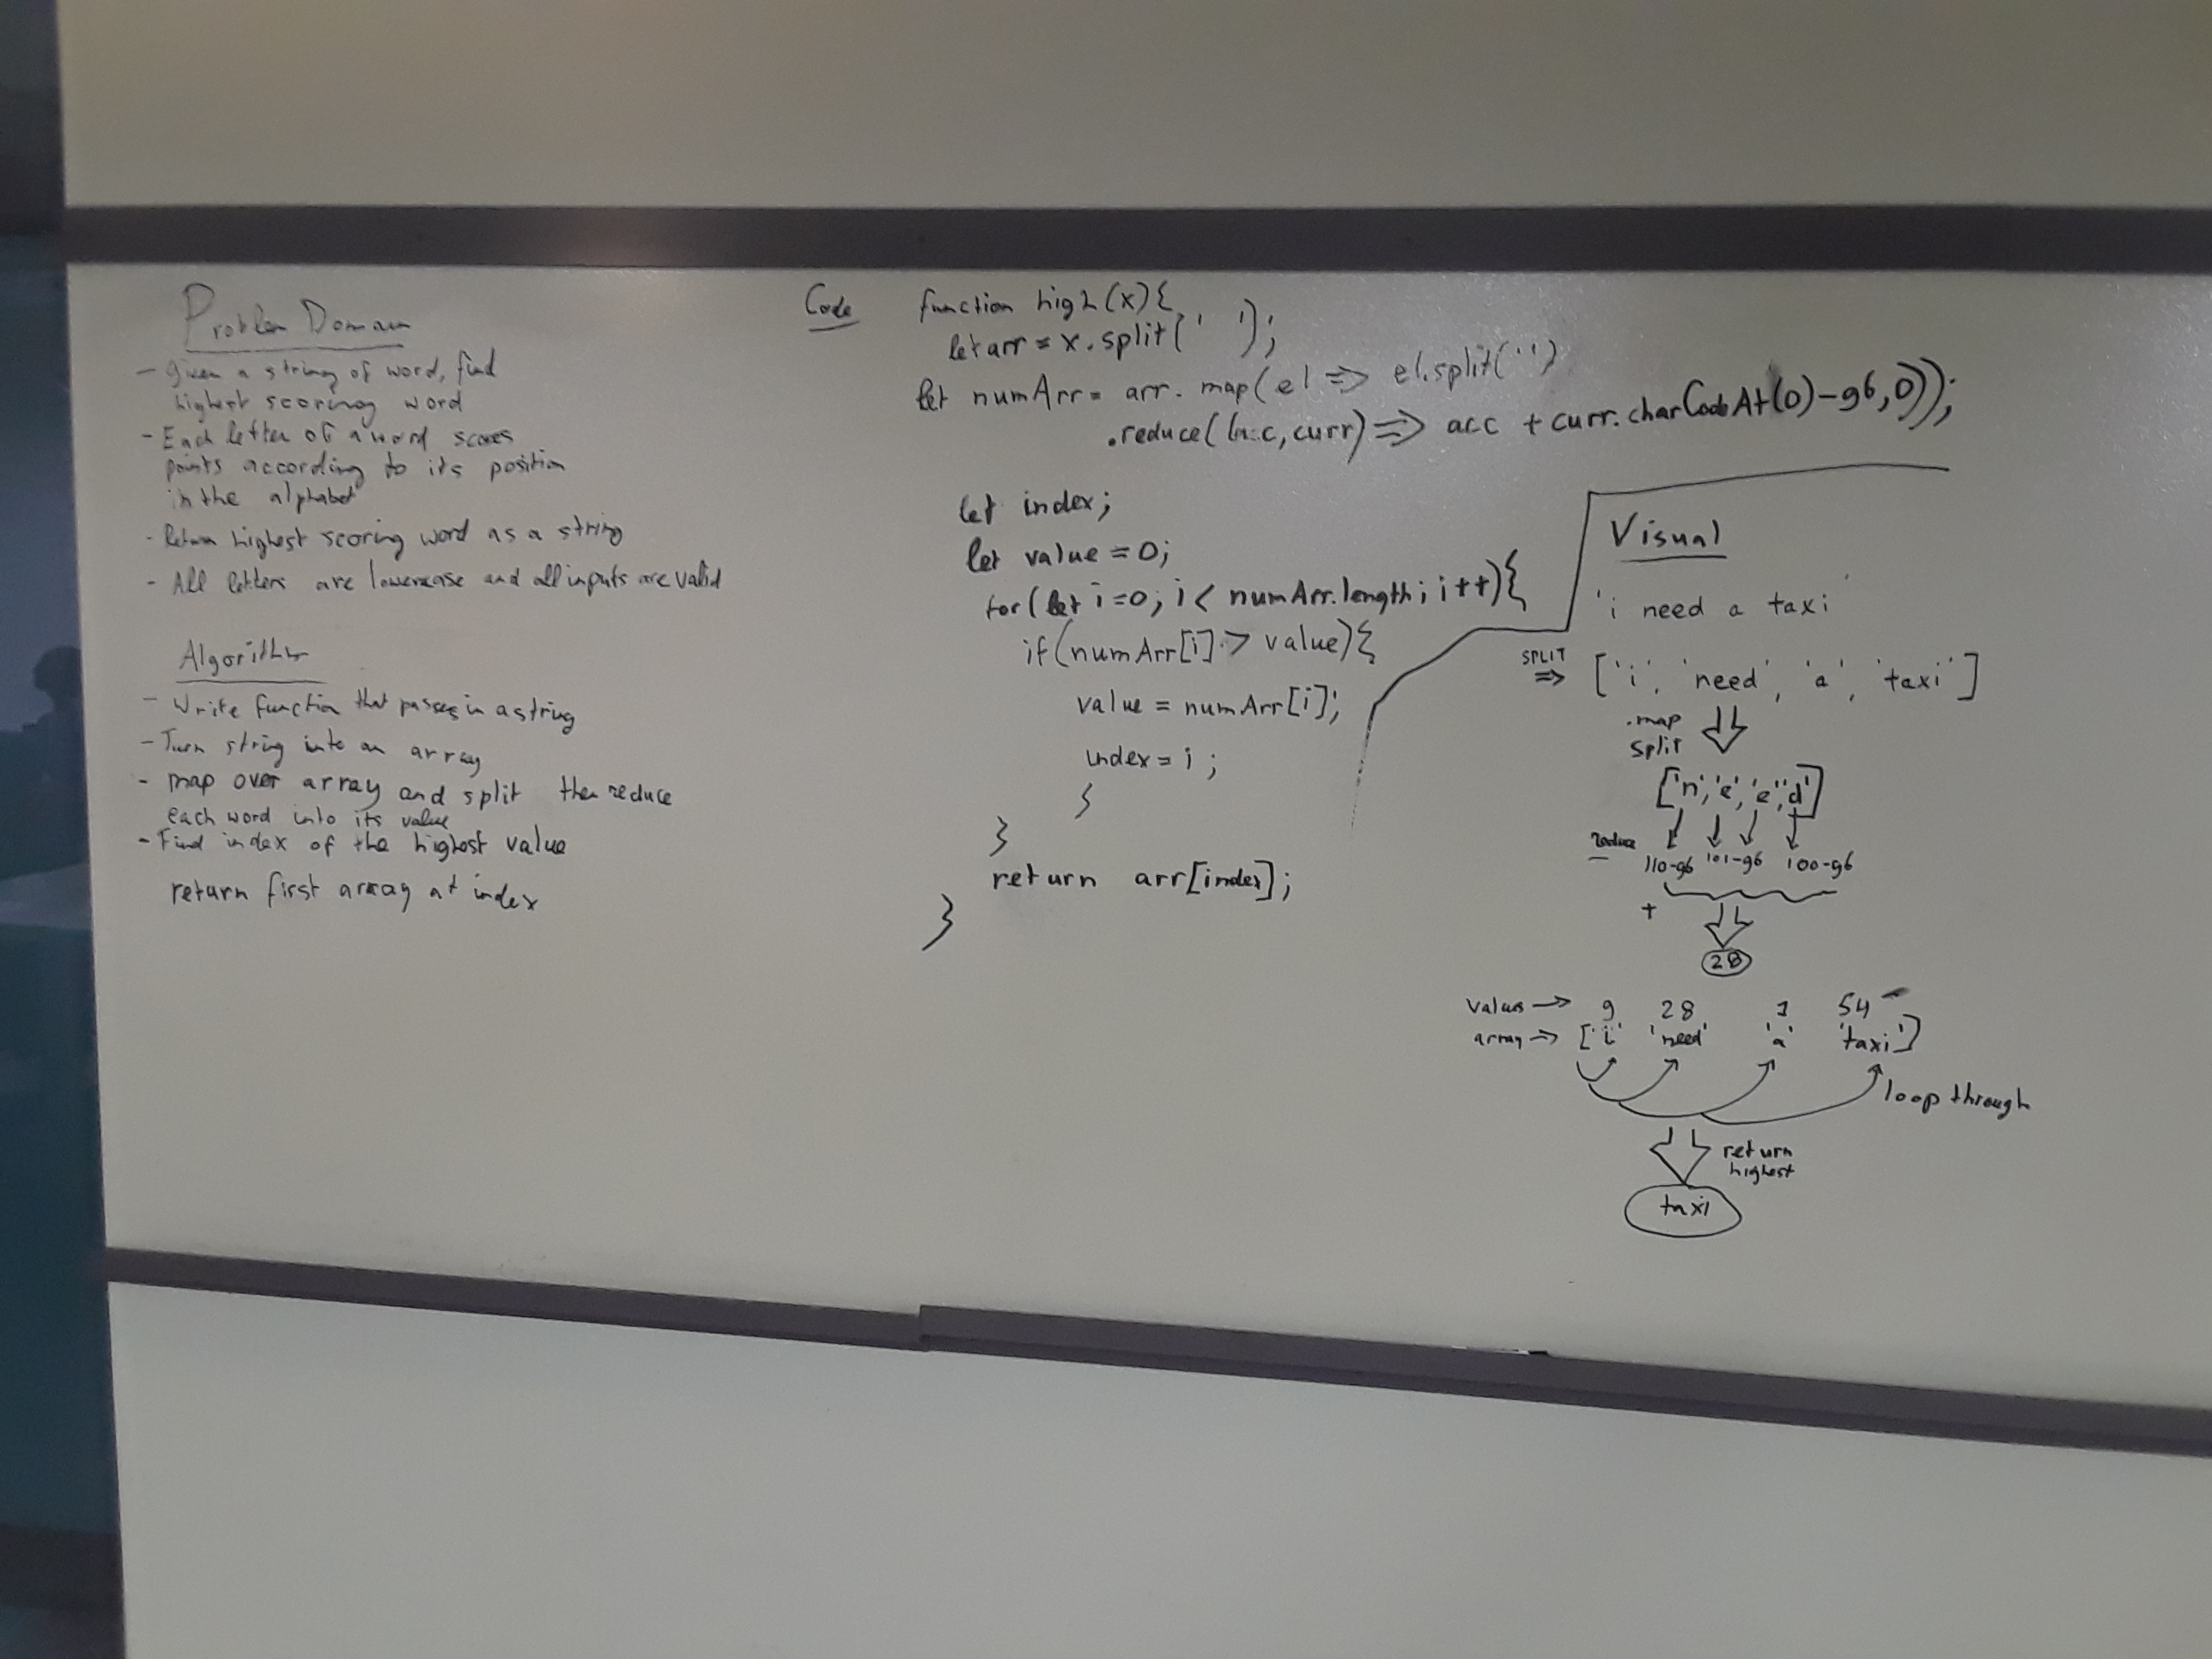 Problem Domain
- Given a string of word, find
highest scoring word
- Each letter of a word scores
points according to its position
in the alphabet
- Return highest scoring word as a string
- All letters are lowercase and all inputs are valid
Algorithm
- Write function that passes in a string
- Turn string into an array
- map over array and split then reduce
each word into its value
- Find index of the highest value
return first array at index
Code
function high(x){
let arr = x.split(' ');
let numArr = arr.map(el => el.split('')
.reduce((acc, curr) => acc + curr.charCodeAt(0)-96,0));
let index;
let value = 0;
for(let i=0; i < numArr.length; i++){
if(numArr[i] > value){
value = numArr[i];
index = i;
}
}
return arr[index];
}
Visual
'i need a taxi'
SPLIT
=> ['i', 'need', 'a', 'taxi']
.map
split
['n','e','e''d']
reduce
110-96 101-96 100-96
+
28
values → 9 28 1 54
array → ['i' 'need' 'a' 'taxi']
loop through
return
highest
taxi